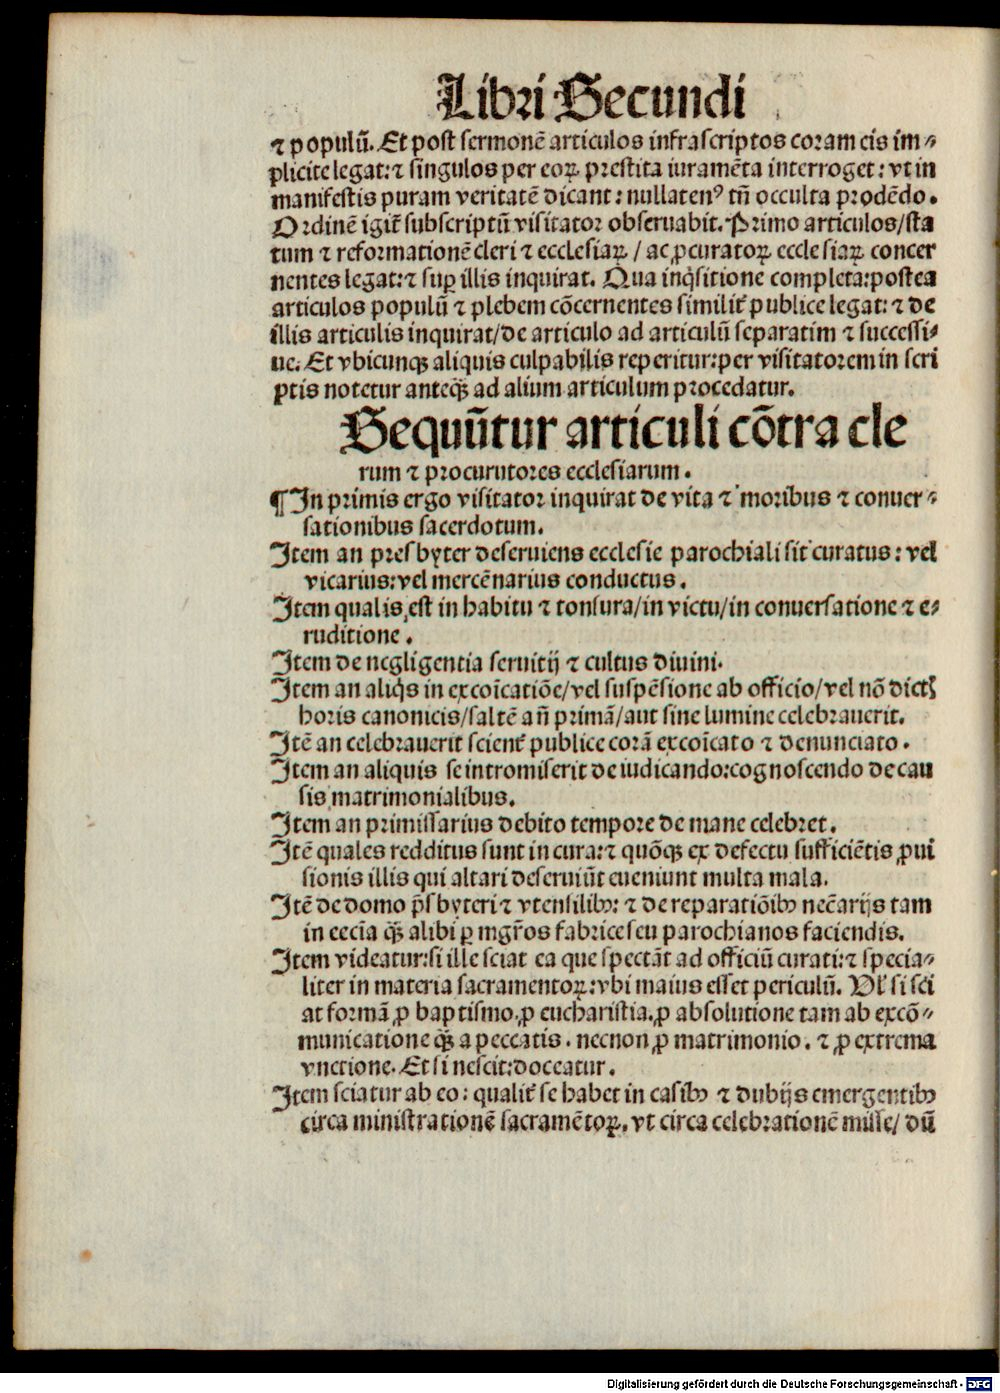 Libri Secundi
⁊ populū. Et post sermonē articulos infrascriptos coram eis im⸗
plicite legat:⁊ singulos per eoꝝ prestita iuramēta interroget: vt in
manifestis puram veritatē dicant: nullatenꝰ tn̄ occulta prodēdo.
Ordinē igit̄ subscriptū visitator obseruabit. Primo articulos/sta
tum ⁊ reformationē cleri ⁊ ecclesiaꝝ/ ac ꝓcuratoꝝ ecclesiaꝝ concer
nentes legat:⁊ suꝑ illis inquirat. Qua inq̇sitione completa:postea
articulos populū ⁊ plebem cōcernentes similit̄ publice legat: ⁊ de
illis articulis inquirat/de articulo ad articulū separatim ⁊ successi⸗
ue. Et vbicunqꝫ aliquis culpabilis reperitur:per visitatorem in scri
ptis notetur anteqꝫ̄ ad alium articulum procedatur.
Sequūtur articuli cōtra cle
rum ⁊ procurutores ecclesiarum.
¶In primis ergo visitator inquirat de vita ⁊ moribus ⁊ conuer⸗
sationibus sacerdotum.
Item an presbyter deseruiens ecclesie parochiali sit curatus: vel
vicarius:vel mercēnarius conductus.
Item qualis est in habitu ⁊ tonsura/in victu/in conuersatione ⁊ e⸗
ruditione.
Item de negligentia seruitij ⁊ cultus diuini.
Item an aliq̇s in excōicatiōe/vel suspēsione ab officio/vel nō dictꝭ
horis canonicis/saltē an̄ primā/aut sine lumine celebrauerit.
Itē an celebrauerit scient̄ publice corā excōicato ⁊ denunciato.
Item an aliquis se intromiserit de iudicando:cognoscendo de cau
sis matrimonialibus.
Item an primissarius debito tempore de mane celebret.
Itē quales redditus sunt in cura:⁊ quōqꝫ ex defectu sufficiētis ꝓui
sionis illis qui altari deseruiūt eueniunt multa mala.
Itē de domo p̄sbyteri ⁊ vtensilibꝰ: ⁊ de reparatiōibꝰ nec̄arijs tam
in eccīa qꝫ̄ alibi ꝑ mgr̄os fabrice seu parochianos faciendis.
Item videatur:si ille sciat ea que spectāt ad officiū curati:⁊ specia⸗
liter in materia sacramentoꝝ:vbi maius esset periculū. Vl̄ si sci
at formā ꝓ baptismo.ꝓ eucharistia.ꝓ absolutione tam ab excō⸗
municatione qꝫ̄ a peccatis. necnon ꝓ matrimonio. ⁊ ꝓ extrema
vnctione. Et si nescit:doceatur.
Item sciatur ab eo: qualit̄ se habet in casibꝰ ⁊ dubijs emergentibꝰ
circa ministrationē sacramētoꝝ. vt circa celebrationē misse/ dū
Digitalisierung gefördert durch die Deutsche Forschungsgemeinschaft - DFG